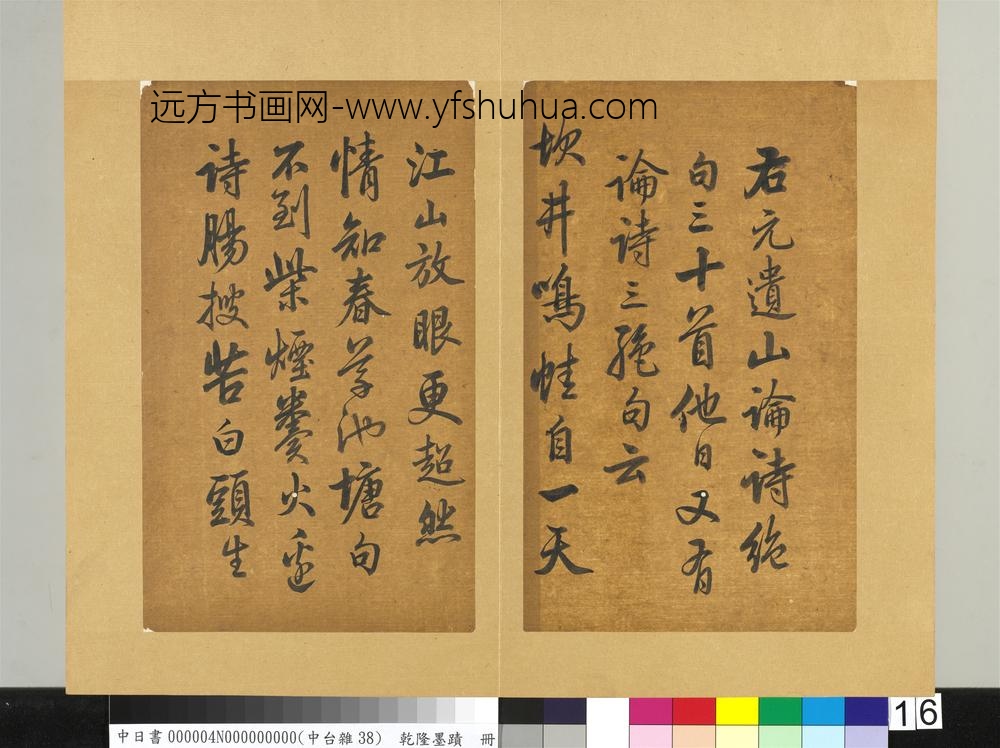 远方书画网-www.yfshuhua.com
右元遺山論詩絶
句三十首他日又有
論詩三絶句云
坎井鳴蛙自一天
江山放眼更超然
情知春草池塘句
不到柴煙糞火邊
詩腸搜苦白頭生
16
中日書 000004N000000000(中台雜 38) 乾隆墨蹟 冊